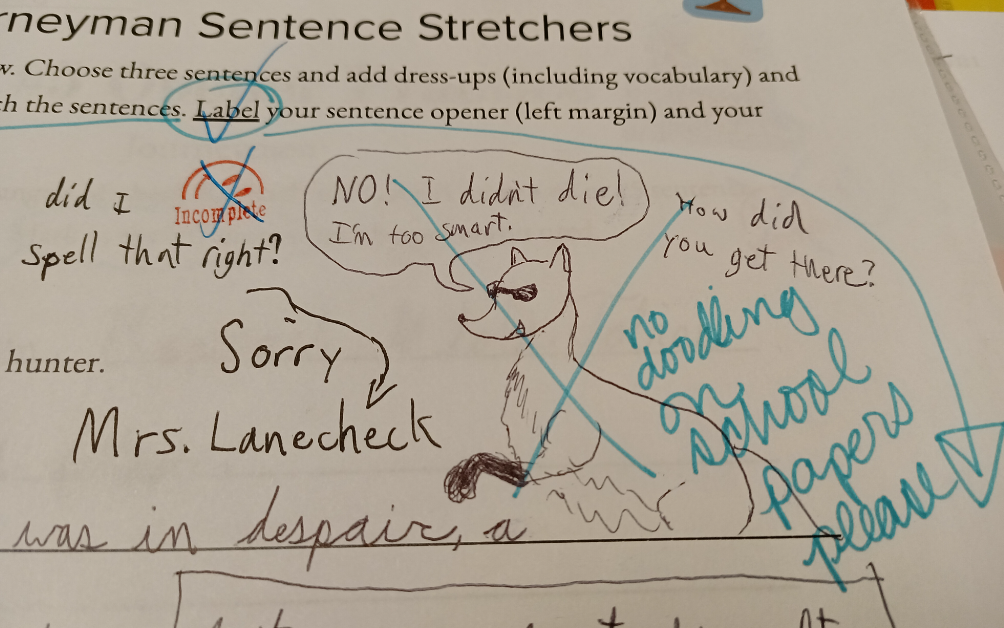 rneyman Sentence Stretchers
w. Choose three sentences and add dress-ups (including vocabulary) and
h the sentences. Label your sentence opener (left margin) and your
did I
spell that right?
Incomplete
NO! I didn't die!
I'm too smart.
How did
you get there?
no
doodling
on
school
papers
please
hunter.
Sorry
Mrs. Lanecheck
was in despair, a